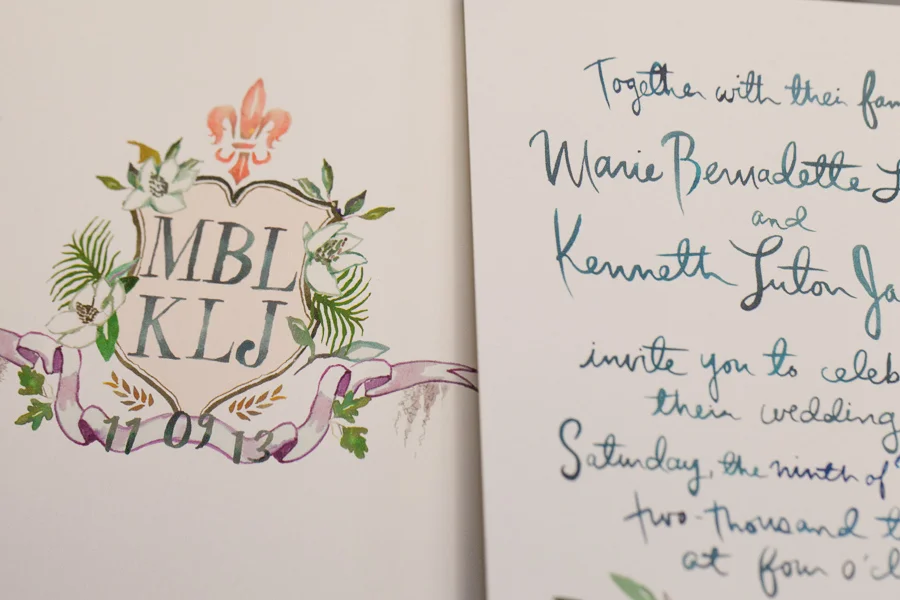 MBL
KLJ
11 09 13
Together with their fam
Marie Bernadette L
and
Kenneth Luton Ja
invite you to celeb
their wedding
Saturday, the ninth of
two-thousand t
at four o'cl